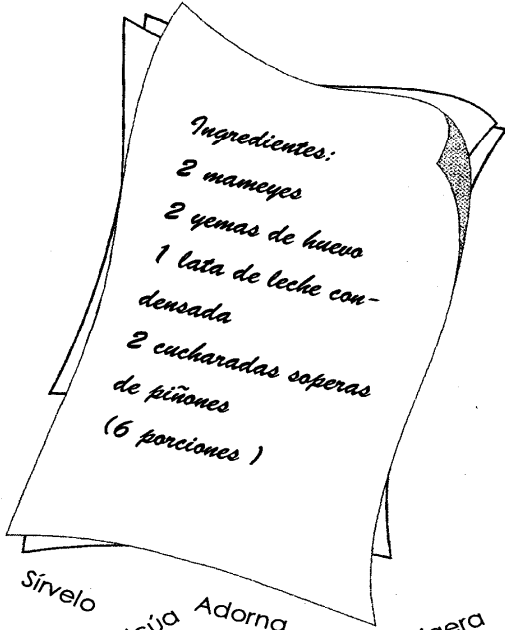 Ingredientes:
2 mameyes
2 yemas de huevo
1 lata de leche con-
densada
2 cucharadas soperas
de piñones
(6 porciones )
Sírvelo
Adorna